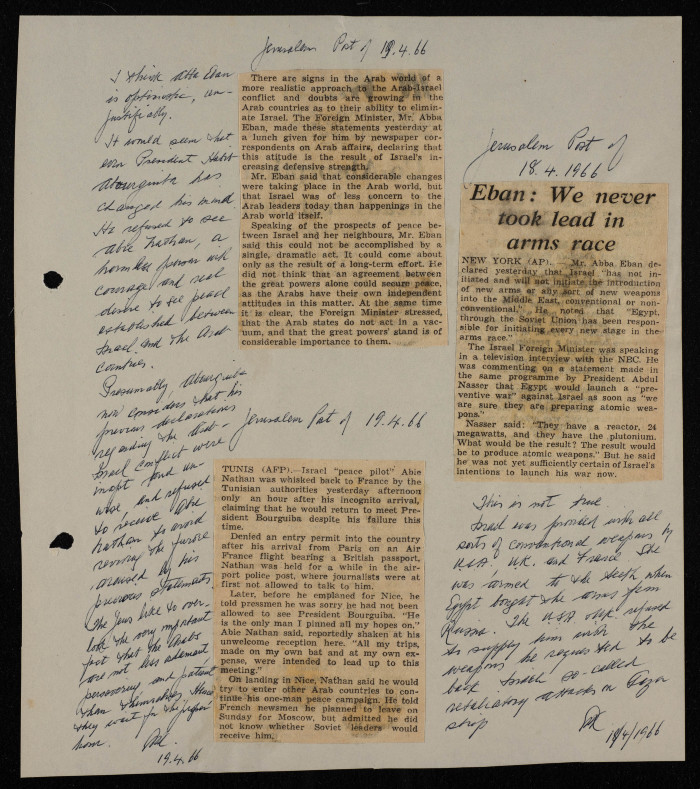 Jerusalem Post of 19.4.66
I think Abba Eban
is optimistic, un-
justifiably.
It would seem that
even President Habib
Abourguiba has
changed his mind.
He refused to see
Abie Nathan, a
harmless person with
courage and real
desire to see peace
established between
Israel and the Arab
Countries.
Presumably Abourguiba
now considers that his
previous declarations
regarding the Arab-
Israel conflict were
inapt and un-
wise, and refused
to receive Abie
Nathan to avoid
the furore
aroused by his
previous statements
The Jews like to over-
look the very important
fact that the Arabs
are not less adamant
persevering and patient
than themselves when
they want
19.4.66
There are signs in the Arab world of a
more realistic approach to the Arab-Israel
conflict and doubts are growing in the
Arab countries as to their ability to elimin-
ate Israel. The Foreign Minister, Mr. Abba
Eban, made these statements yesterday at
a lunch given for him by newspaper cor-
respondents on Arab affairs, declaring that
this atitude is the result of Israel's in-
creasing defensive strength.
Mr. Eban said that considerable changes
were taking place in the Arab world, but
that Israel was of less concern to the
Arab leaders today than happenings in the
Arab world itself.
Speaking of the prospects of peace be-
tween Israel and her neighbours, Mr. Eban
said this could not be accomplished by a
single, dramatic act. It could come about
only as the result of a long-term effort. He
did not think that an agreement between
the great powers alone could secure peace,
as the Arabs have their own independent
attitudes in this matter. At the same time
it is clear, the Foreign Minister stressed,
that the Arab states do not act in a vac-
uum, and that the great powers' stand is of
considerable importance to them.
Jerusalem Post of 19.4.66
TUNIS (AFP).—Israel "peace pilot" Abie
Nathan was whisked back to France by the
Tunisian authorities yesterday afternoon
only an hour after his incognito arrival,
claiming that he would return to meet Pre-
sident Bourguiba despite his failure this
time.
Denied an entry permit into the country
after his arrival from Paris on an Air
France flight bearing a British passport,
Nathan was held for a while in the air-
port police post, where journalists were at
first not allowed to talk to him.
Later, before he emplaned for Nice, he
told pressmen he was sorry he had not been
allowed to see President Bourguiba. "He
is the only man I pinned all my hopes on,"
Abie Nathan said, reportedly shaken at his
unwelcome reception here. "All my trips,
made on my own bat and at my own ex-
pense, were intended to lead up to this
meeting."
On landing in Nice, Nathan said he would
try to enter other Arab countries to con-
tinue his one-man peace campaign. He told
French newsmen he planned to leave on
Sunday for Moscow, but admitted he did
not know whether Soviet leaders would
receive him.
Jerusalem Post of
18.4.1966
Eban: We never
took lead in
arms race
NEW YORK (AP). — Mr. Abba Eban de-
clared yesterday that Israel "has not in-
itiated and will not initiate the introduction
of new arms or any sort of new weapons
into the Middle East, conventional or non-
conventional." He noted that "Egypt,
through the Soviet Union, has been respon-
sible for initiating every new stage in the
arms race."
The Israel Foreign Minister was speaking
in a television interview with the NBC. He
was commenting on a statement made in
the same programme by President Abdul
Nasser that Egypt would launch a "pre-
ventive war" against Israel as soon as "we
are sure they are preparing atomic wea-
pons."
Nasser said: "They have a reactor, 24
megawatts, and they have the plutonium.
What would be the result? The result would
be to produce atomic weapons." But he said
he was not yet sufficiently certain of Israel's
intentions to launch his war now.
This is not true.
Israel was provided with all
sorts of conventional weapons by
USA. UK. and France. She
was armed to the teeth when
Egypt bought the arms from
Russia. The USA refused
to supply him with the
weapons he requested to
back Israeli so-called
retaliatory attacks on Gaza
strip
/4/1966